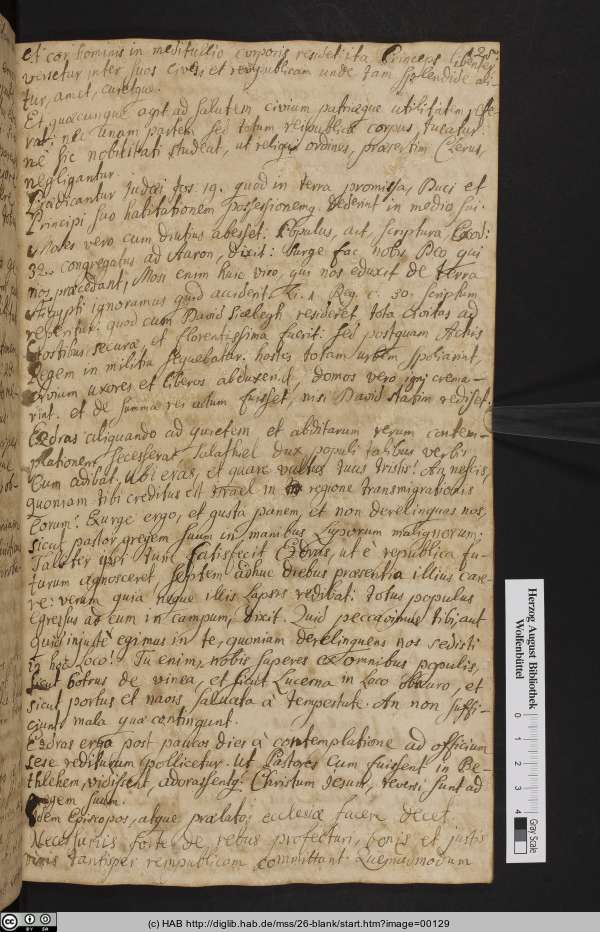 et cor hominis in meditullio corporis residet: ita Princeps libenter
versetur inter suos cives et rempublicam unde tam splendide ali-
tur, amet, curetque.
Et quæcunque agit ad salutem civium patriæque utilitatem refe-
rat: nec unam partem sed totum reipublicæ corpus, tueatur:
ne sic nobilitati studeat, ut reliqui ordines, præsertim Clerus,
negligantur.
Prædicantur Judæi Jos: 19. quod in terra promissa, Duci et
Principi suo habitationem possessionemq; dederint in medio sui.
Moses vero cum diutius abesset: Populus, ait Scriptura Exod:
32. congregatus ad Aaron, dixit: Surge fac nobis Deo qui
nos præcedant, Mosi enim huic viro, qui nos eduxit de terra
Ægypti ignoramus quid acciderit. Et 1 Reg. c. 30. scriptum
reperitur: quod cum David Sicelegh resideret tota Civitas ad
hostibus secura, et florentissima fuerit: sed postquam Achis
Regem in militia sequebatur: hostes totam urbem spoliarint,
civium uxores et liberos abduxerint, domos vero igni crema-
rint. et de summa rei actum fuisset, nisi David statim redisset.
Esdras aliquando ad quietem et abditarum rerum contem-
plationem secesserat Salathiel dux populi talibus verbis
Eum adibat. Ubi eras, et quare vultus tuus tristis? An nescis,
quoniam tibi creditus est Israel in regione transmigrationis
Eorum? Exurge ergo, et gusta panem, et non derelinquas nos,
sicut pastor gregem suum in manibus Luporum malignorum;
Taliter ipsi tunc satisfecit Esdras, ut e republica fu-
turum agnosceret, septem adhuc diebus præsentia illius care-
re: verum quia neque illis Lapsis redibat: totus populus
Egressus ad eum in campum, dixit. Quid peccavimus tibi, aut
quid injuste egimus in te, quoniam derelinquens nos sedisti
in hoc Loco? Tu enim nobis superes ex omnibus populis,
sicut botrus de vinea, et sicut Lucerna in Loco obscuro, et
sicut portus et navis salvata à tempestate. An non suffi-
ciunt mala quæ contingunt.
Esdras ergo post paucos dies à contemplatione ad officium
sese rediturum pollicetur. Ut Pastores cum fuissent in Be-
thlehem, vidissent, adorassentq; Christum Jesum, reversi sunt ad
gregem suum.
Idem Episcopos, atque prælatos ecclesiæ facere decet.
Necessariis forte de rebus profecturi, bonis et justis
viris tantisper rempublicam committant. Quemadmodum
Herzog August Bibliothek
Wolfenbüttel
0 1 2 3 4
Gray Scale
(c) HAB http://diglib.hab.de/mss/26-blank/start.htm?image=00129